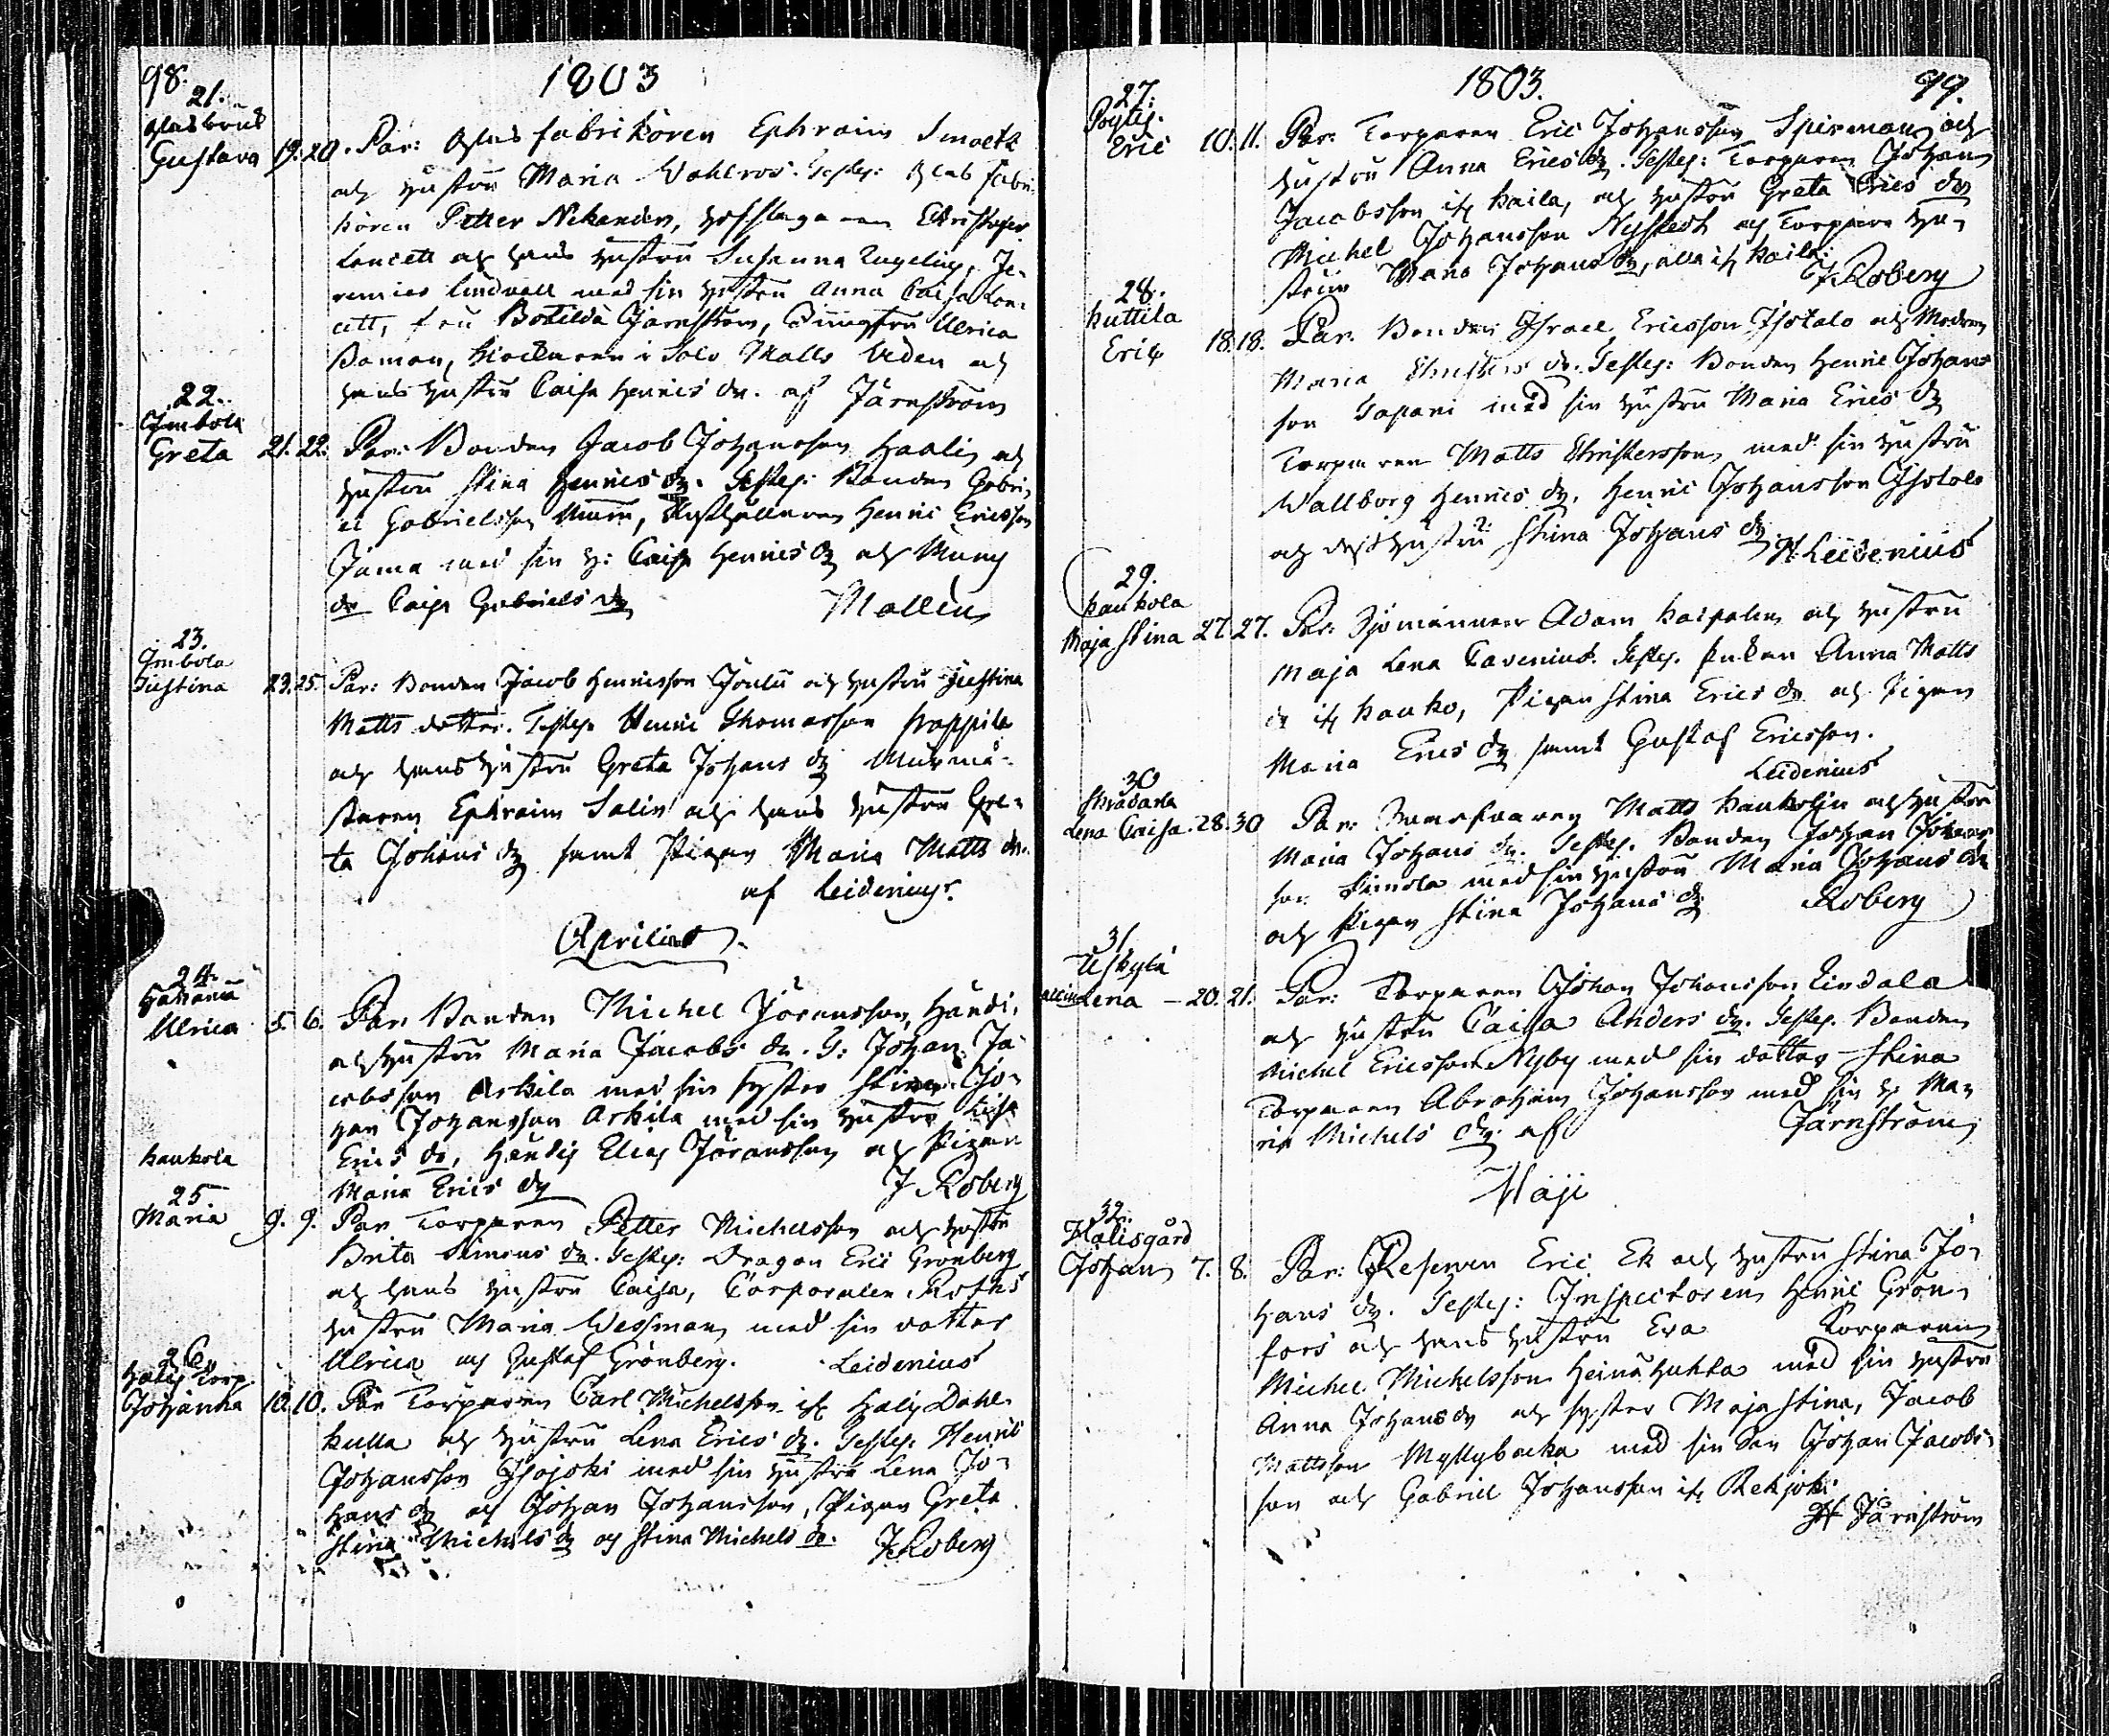 98. 1803
21.
Glasbruk
Gustava 19. 20. Par: Glasfabrikören Ephraim
och hustru Maria Wahlroos. Testes: Glas fabri
kören Petter Nikander, Christopher
och hans hustru Susanna Zugelius, Je-
remias Lindwall med sin hustru Anna Caisa
fru Botilda Järnström, Jungfru Ulrica
Boman, i Salo Matts Uden och
hans hustru Caisa Henrics dr. af Järnström
22.
Imbola
Greta 21. 22. Par: Bonden Jacob Johansson och
hustru Stina Henrics dr. Testes: Bonden Gabri-
el Gabrielsson Mum, Rusthållaren Henric Ericsson
Juma med sin h: Caisa Henrics dr och
dr Caisa Gabriels dr Mallén
23.
Imbola
Justina 23. 25. Par: Bonden Jacob Henricsson och hustru Justina
Matts dotter. Testes Henric Thomasson
och hans hustru Greta Johans dr Murmä-
staren Ephraim Salin och hans hustru Gre-
ta Johans dr samt Pigan Maria Matts dr.
af Leidenius.
Aprilis
24.
Ulrica 5. 6. Par Bonden Michel Göransson Händi,
och hustru Maria Jacobs dr. T: Johan Ja-
cobsson Arkila med sin syster Stina. Jo-
han Johansson Arkila med sin hustru Lisa
Erics dr, Händis Elias Göransson och Pigan
Maria Erics dr J Roberg
Kaukola
25.
Maria 9. 9. Par Torparen Petter Michelsson och hustru
Brita Simons dr. Testes: Dragon Eric Grönberg
och hans hustru Caisa, Corporalen Roths
hustru Maria Wessman med sin dotter
Ulrica och Gustaf Grönberg. Leidenius
26.
Halis Torp.
Johanna 10. 10. Par Torparen Carl Michelsson ifr. Halis Dahl-
kulla och hustru Lena Erics dr. Testes: Henric
Johansson Isojoki med sin hustru Lena Jo-
hans dr och Johan Johansson, Pigan Greta
Stina Michels dr och Stina Michels dr. J Roberg
1803. 99.
27.
Eric 10. 11. Par: Torparen Eric Johansson Spirman och
hustru Anna Erics dr. Testes: Torparen Johan
Jacobsson ifr. Kaila, och hustru Greta Erics dr
Michel Johansson Nystedt och Torpare hu-
strun Maria Johans dr, alla ifr Kaila. J Roberg
28.
Kuttila
Eric 18. 18. Par. Bonden Israel Ericsson Isotalo och Modren
Maria Christers dr. Testes: Bonden Henric Johans
son Sapani med sin hustru Maria Erics dr
Torparen Matts Christersson med sin hustru
Wallborg Henrics dr. Henric Johansson Isotalo
och dess hustru Stina Johans dr H: Leidenius
29.
Kaukola
Maja Stina 27. 27. Par: Sjömannen Adam och hustru
Maja Lena Cavenius. Testes. Enkan Anna Matts
dr ifr Kauko, Pigan Stina Erics dr och Pigan
Maria Erics dr samt Gustaf Ericsson.
Leidenius
30
Lena Caisa. 28. 30 Par: Matts Kaukolin och hustru
Maria Johans dr. Testes. Bonden Johan Johans
son Simola med sin hustru Maria Johans dr
och Pigan Stina Johans dr Roberg
31
Uskyla
Lena - 20. 21. Par: Torparen Johan Johansson Lindala
och hustru Caisa Anders dr. Testes. Bonden
Michel Ericsson Nyby med sin dotter Stina
Torparen Abraham Johansson med sin h: Ma-
ria Michels dr. af Järnström
Maji
32.
Halisgård
Johan 7. 8. Par: Reserven Eric Ek och hustru Stina Jo-
hans dr. Testes: Inspectoren Henric Grön-
fors och hans hustru Eva Torparen
Michel Michelsson Heinähuhta med sin hustru
Anna Johans dr och syster Maja Stina, Jacob
Mattsson Myllybacka med sin Son Johan Jacobs-
son och Gabriel Johansson ifr Rekijoki
Järnström